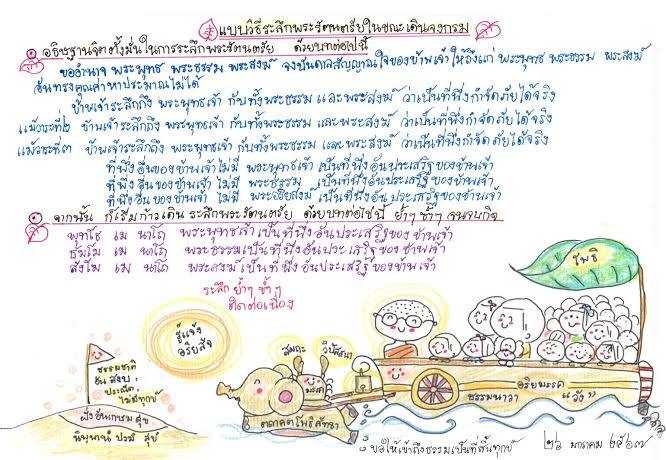 แบบวิธีระลึกพระรัตนตรัยในขณะเดินจงกรม
อธิษฐานจิตตั้งมั่นในการระลึกพระรัตนตรัย ด้วยบทต่อไปนี้
ขออำนาจ พระพุทธ พระธรรม พระสงฆ์ จงบันดาลสัญญาณใจของข้าพเจ้า ให้ถึงแก่ พระพุทธ พระธรรม พระสงฆ์
อันทรงคุณค่าหาประมาณไม่ได้
ข้าพเจ้าระลึกถึง พระพุทธเจ้า กับทั้งพระธรรม และพระสงฆ์ ว่าเป็นที่พึ่งกำจัดภัยได้จริง
แม้วาระที่๒ ข้าพเจ้าระลึกถึง พระพุทธเจ้า กับทั้งพระธรรม และพระสงฆ์ ว่าเป็นที่พึ่งกำจัดภัยได้จริง
แม้วาระที่๓ ข้าพเจ้าระลึกถึง พระพุทธเจ้า กับทั้งพระธรรม และพระสงฆ์ ว่าเป็นที่พึ่งกำจัดภัยได้จริง
ที่พึ่งอื่นของข้าพเจ้าไม่มี พระพุทธเจ้า เป็นที่พึ่งอันประเสริฐของข้าพเจ้า
ที่พึ่งอื่นของข้าพเจ้า ไม่มี พระธรรม เป็นที่พึ่งอันประเสริฐของข้าพเจ้า
ที่พึ่งอื่นของข้าพเจ้า ไม่มี พระอริยสงฆ์ เป็นที่พึ่งอันประเสริฐของข้าพเจ้า
จากนั้น ก็เริ่มก้าวเดิน ระลึกพระรัตนตรัย ด้วยบทต่อไปนี้ ย้ำๆ ซ้ำๆ จนจบกิจ
พุทโธ เม นาโถ พระพุทธเจ้าเป็นที่พึ่งอันประเสริฐของข้าพเจ้า
ธัมโม เม นาโถ พระธรรมเป็นที่พึ่งอันประเสริฐของข้าพเจ้า
สังโฆ เม นาโถ พระสงฆ์เป็นที่พึ่งอันประเสริฐของข้าพเจ้า
ระลึก ย้ำๆ ซ้ำๆ
ติดต่อเนื่อง
โพธิ
รู้แจ้ง
อริยสัจ
สมถะ วิปัสสนา
ธรรมชาติ
อัน สงบ
ประณีต
ไม่มีทุกข์
ฝั่งอันเกษม สุข
นิพพานํ ปรมํ สุขํ
ตถาคตโพธิสัทธา
อริยมรรค
ธรรมนาวา "วัง"
ขอให้เข้าถึงธรรมเป็นที่สิ้นทุกข์
๒๖ มกราคม ๒๕๖๗